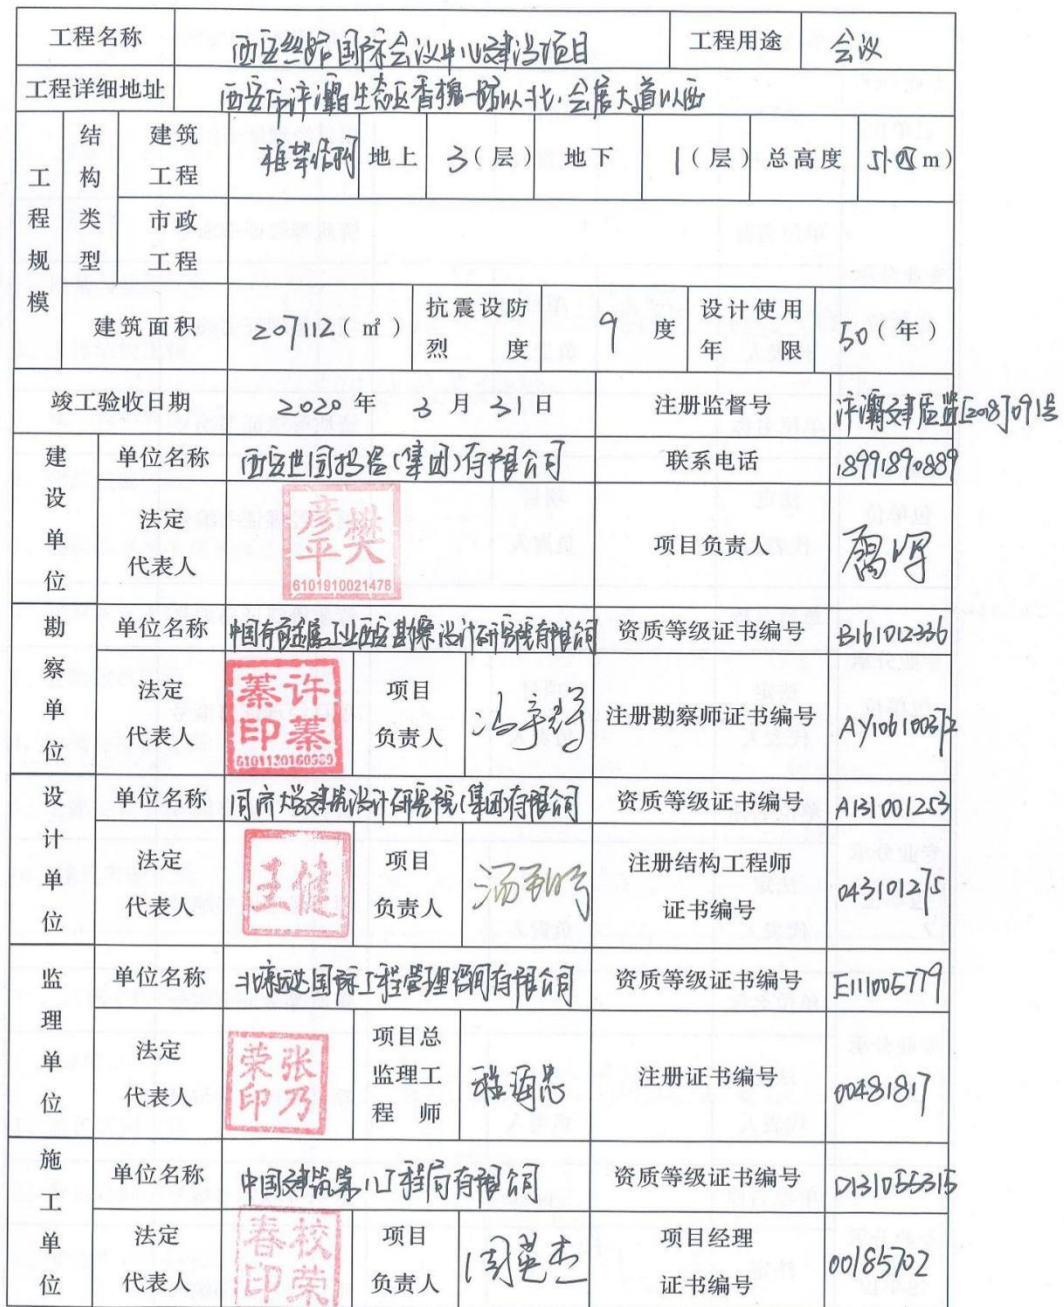 工程名称 西安丝路国际会议中心建设项目 工程用途 会议
工程详细地址 西安市浐灞生态区香槐一路以北、会展大道以西
工程规模 结构类型 建筑工程 框架结构 地上 3(层) 地下 1(层) 总高度 51.05m)
市政工程
建筑面积 207112(㎡) 抗震设防烈度 9度 设计使用年限 50(年)
竣工验收日期 2020年 3月 31日 注册监督号 浐灞建质监[2018]091号
建设单位 单位名称 西安世园投资(集团)有限公司 联系电话 18991890889
法定代表人 樊彦平 6101910021478 项目负责人
勘察单位 单位名称 中国有色金属工业西安勘察设计研究院有限公司 资质等级证书编号 B161012336
法定代表人 许綦綦印 项目负责人 注册勘察师证书编号 AY106100312
设计单位 单位名称 同济大学建筑设计研究院(集团)有限公司 资质等级证书编号 A131001253
法定代表人 王健 项目负责人 注册结构工程师证书编号 043101275
监理单位 单位名称 北京远达国际工程管理咨询有限公司 资质等级证书编号 E111005779
法定代表人 张乃荣印 项目总监理工程师 程海忠 注册证书编号 00481817
施工单位 单位名称 中国建筑第八工程局有限公司 资质等级证书编号 D131055315
法定代表人 校荣春印 项目负责人 周英杰 项目经理证书编号 00185702